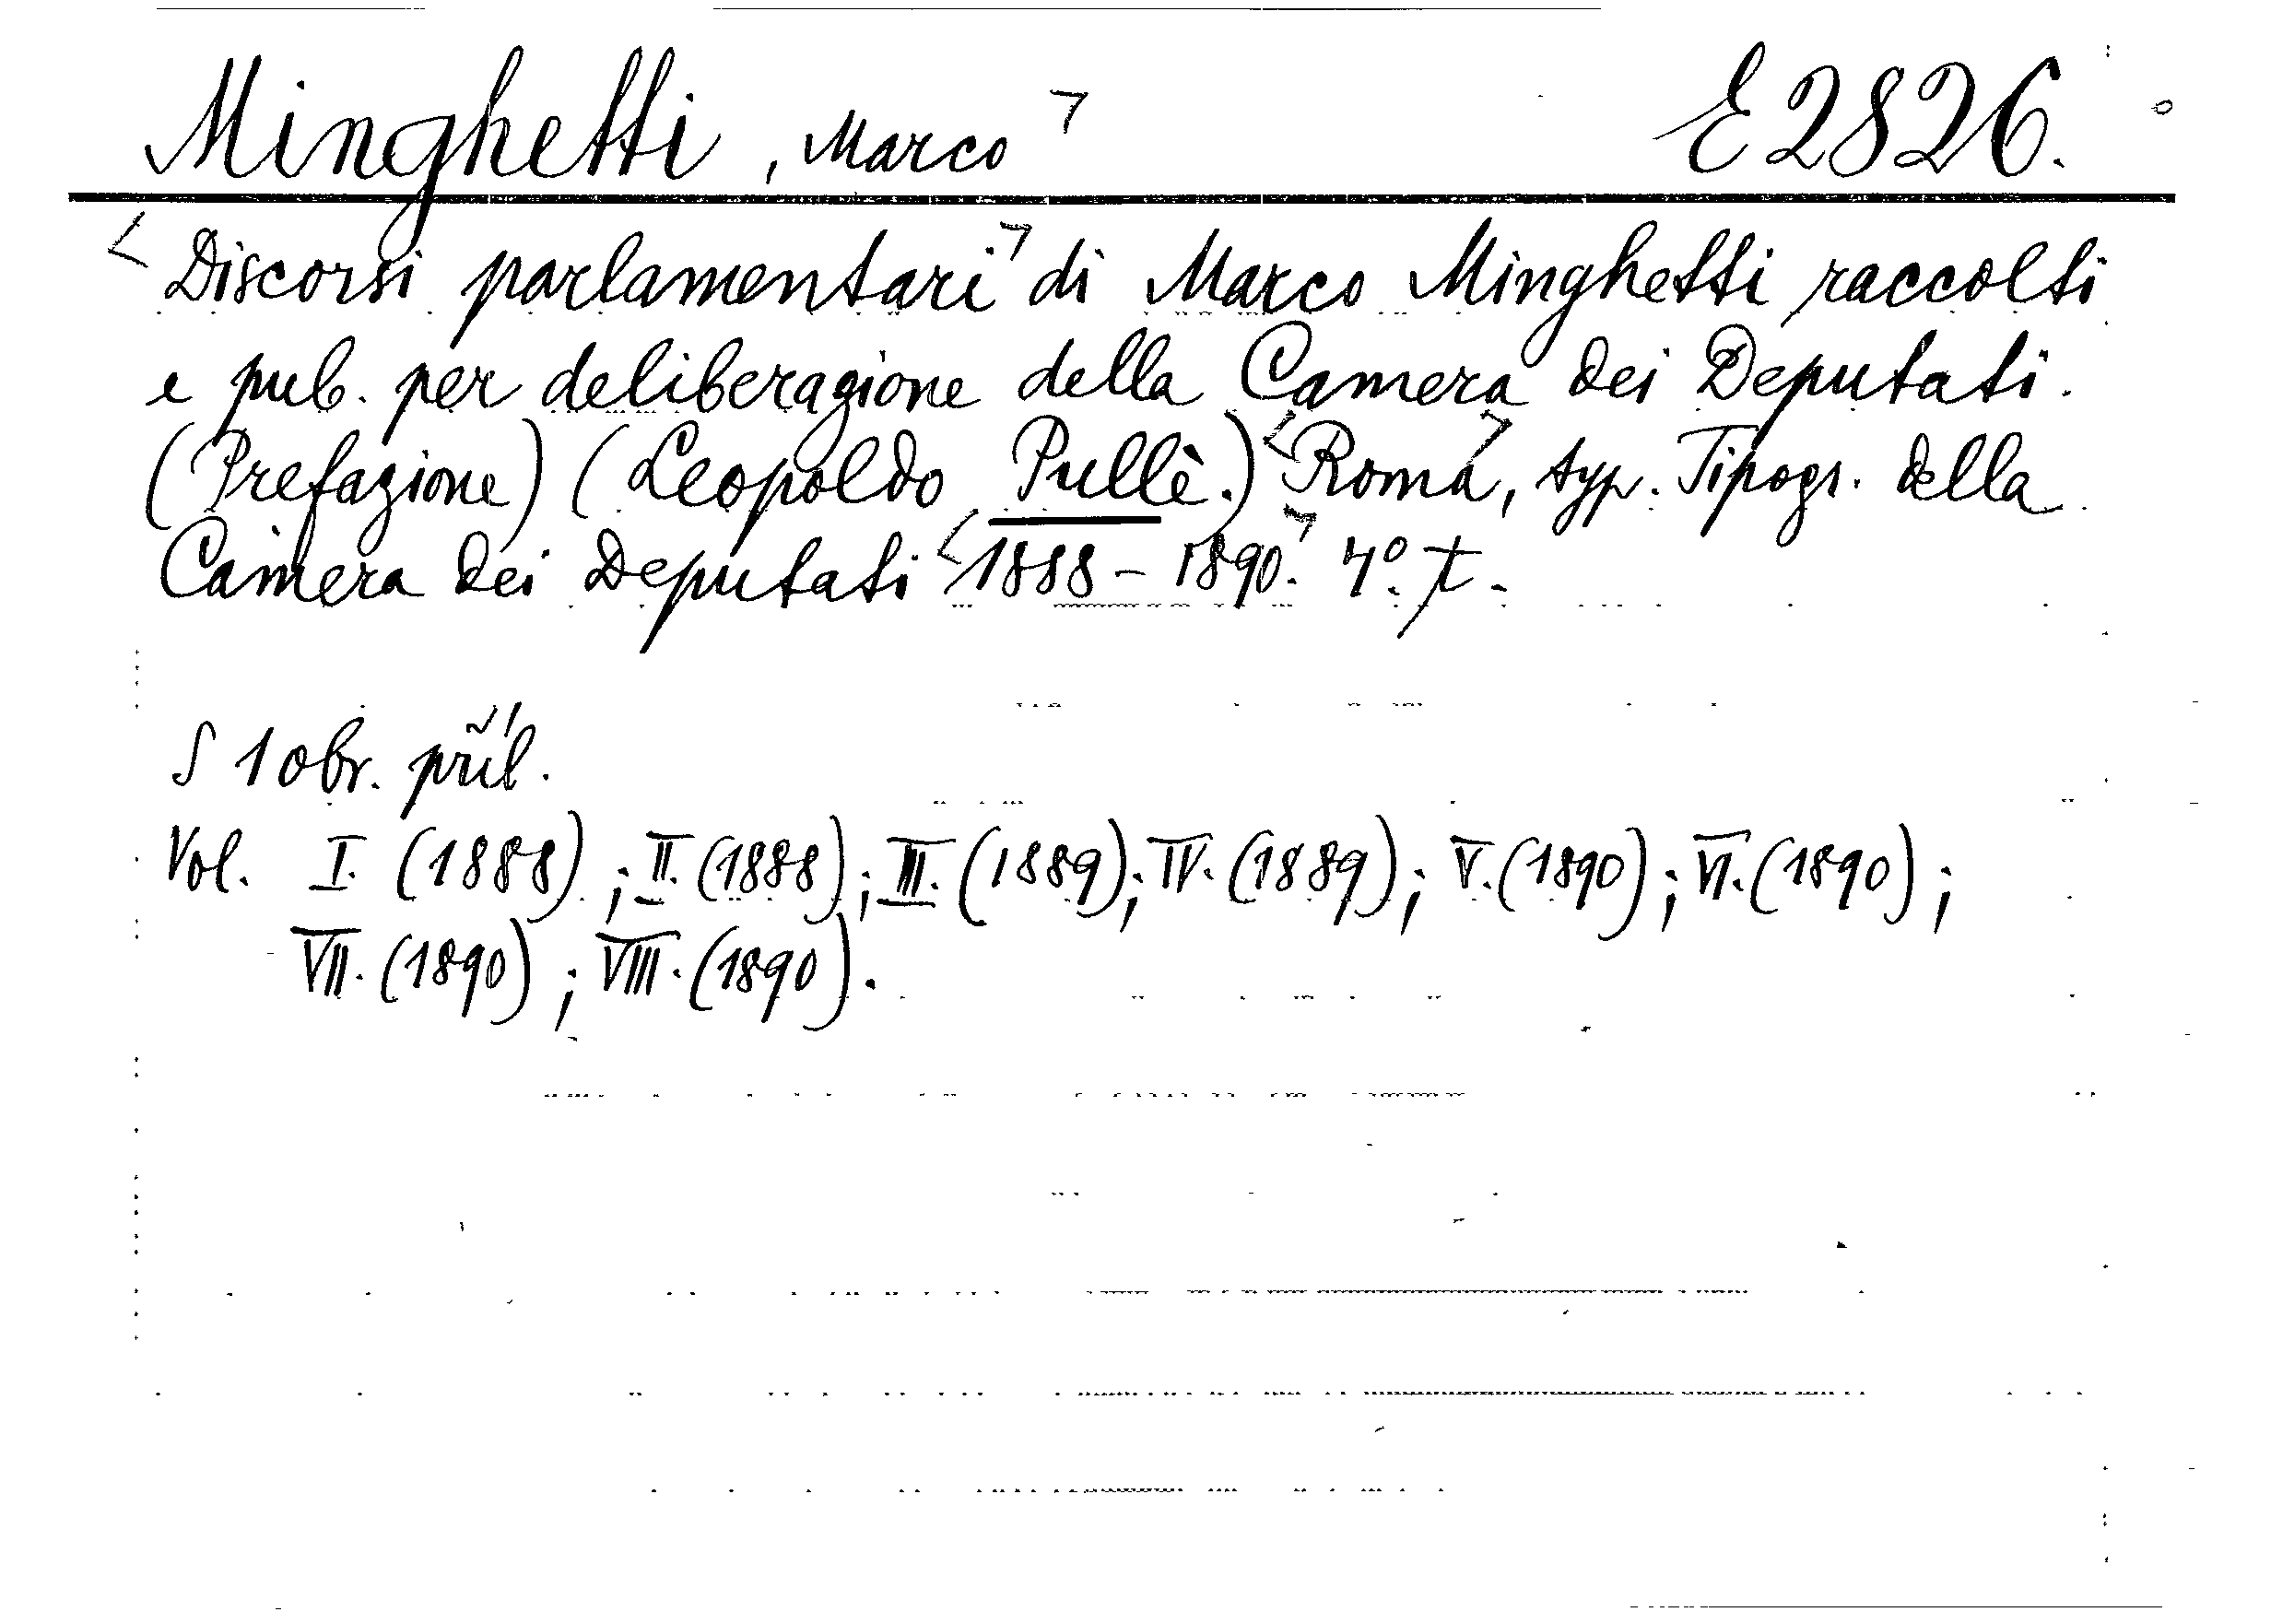 Minghetti, Marco E 2826.
Discorsi parlamentari di Marco Minghetti raccolti
e pub. per deliberazione della Camera dei Deputati.
(Prefazione) (Leopoldo Pullè.) Roma, typ. Tipogr. della
Camera dei Deputati 1888-1890. 4º. t.
S 1 obr. příl.
Vol. I. (1888); II. (1888); III. (1889); IV. (1889); V. (1890); VI. (1890);
VII. (1890); VIII. (1890).